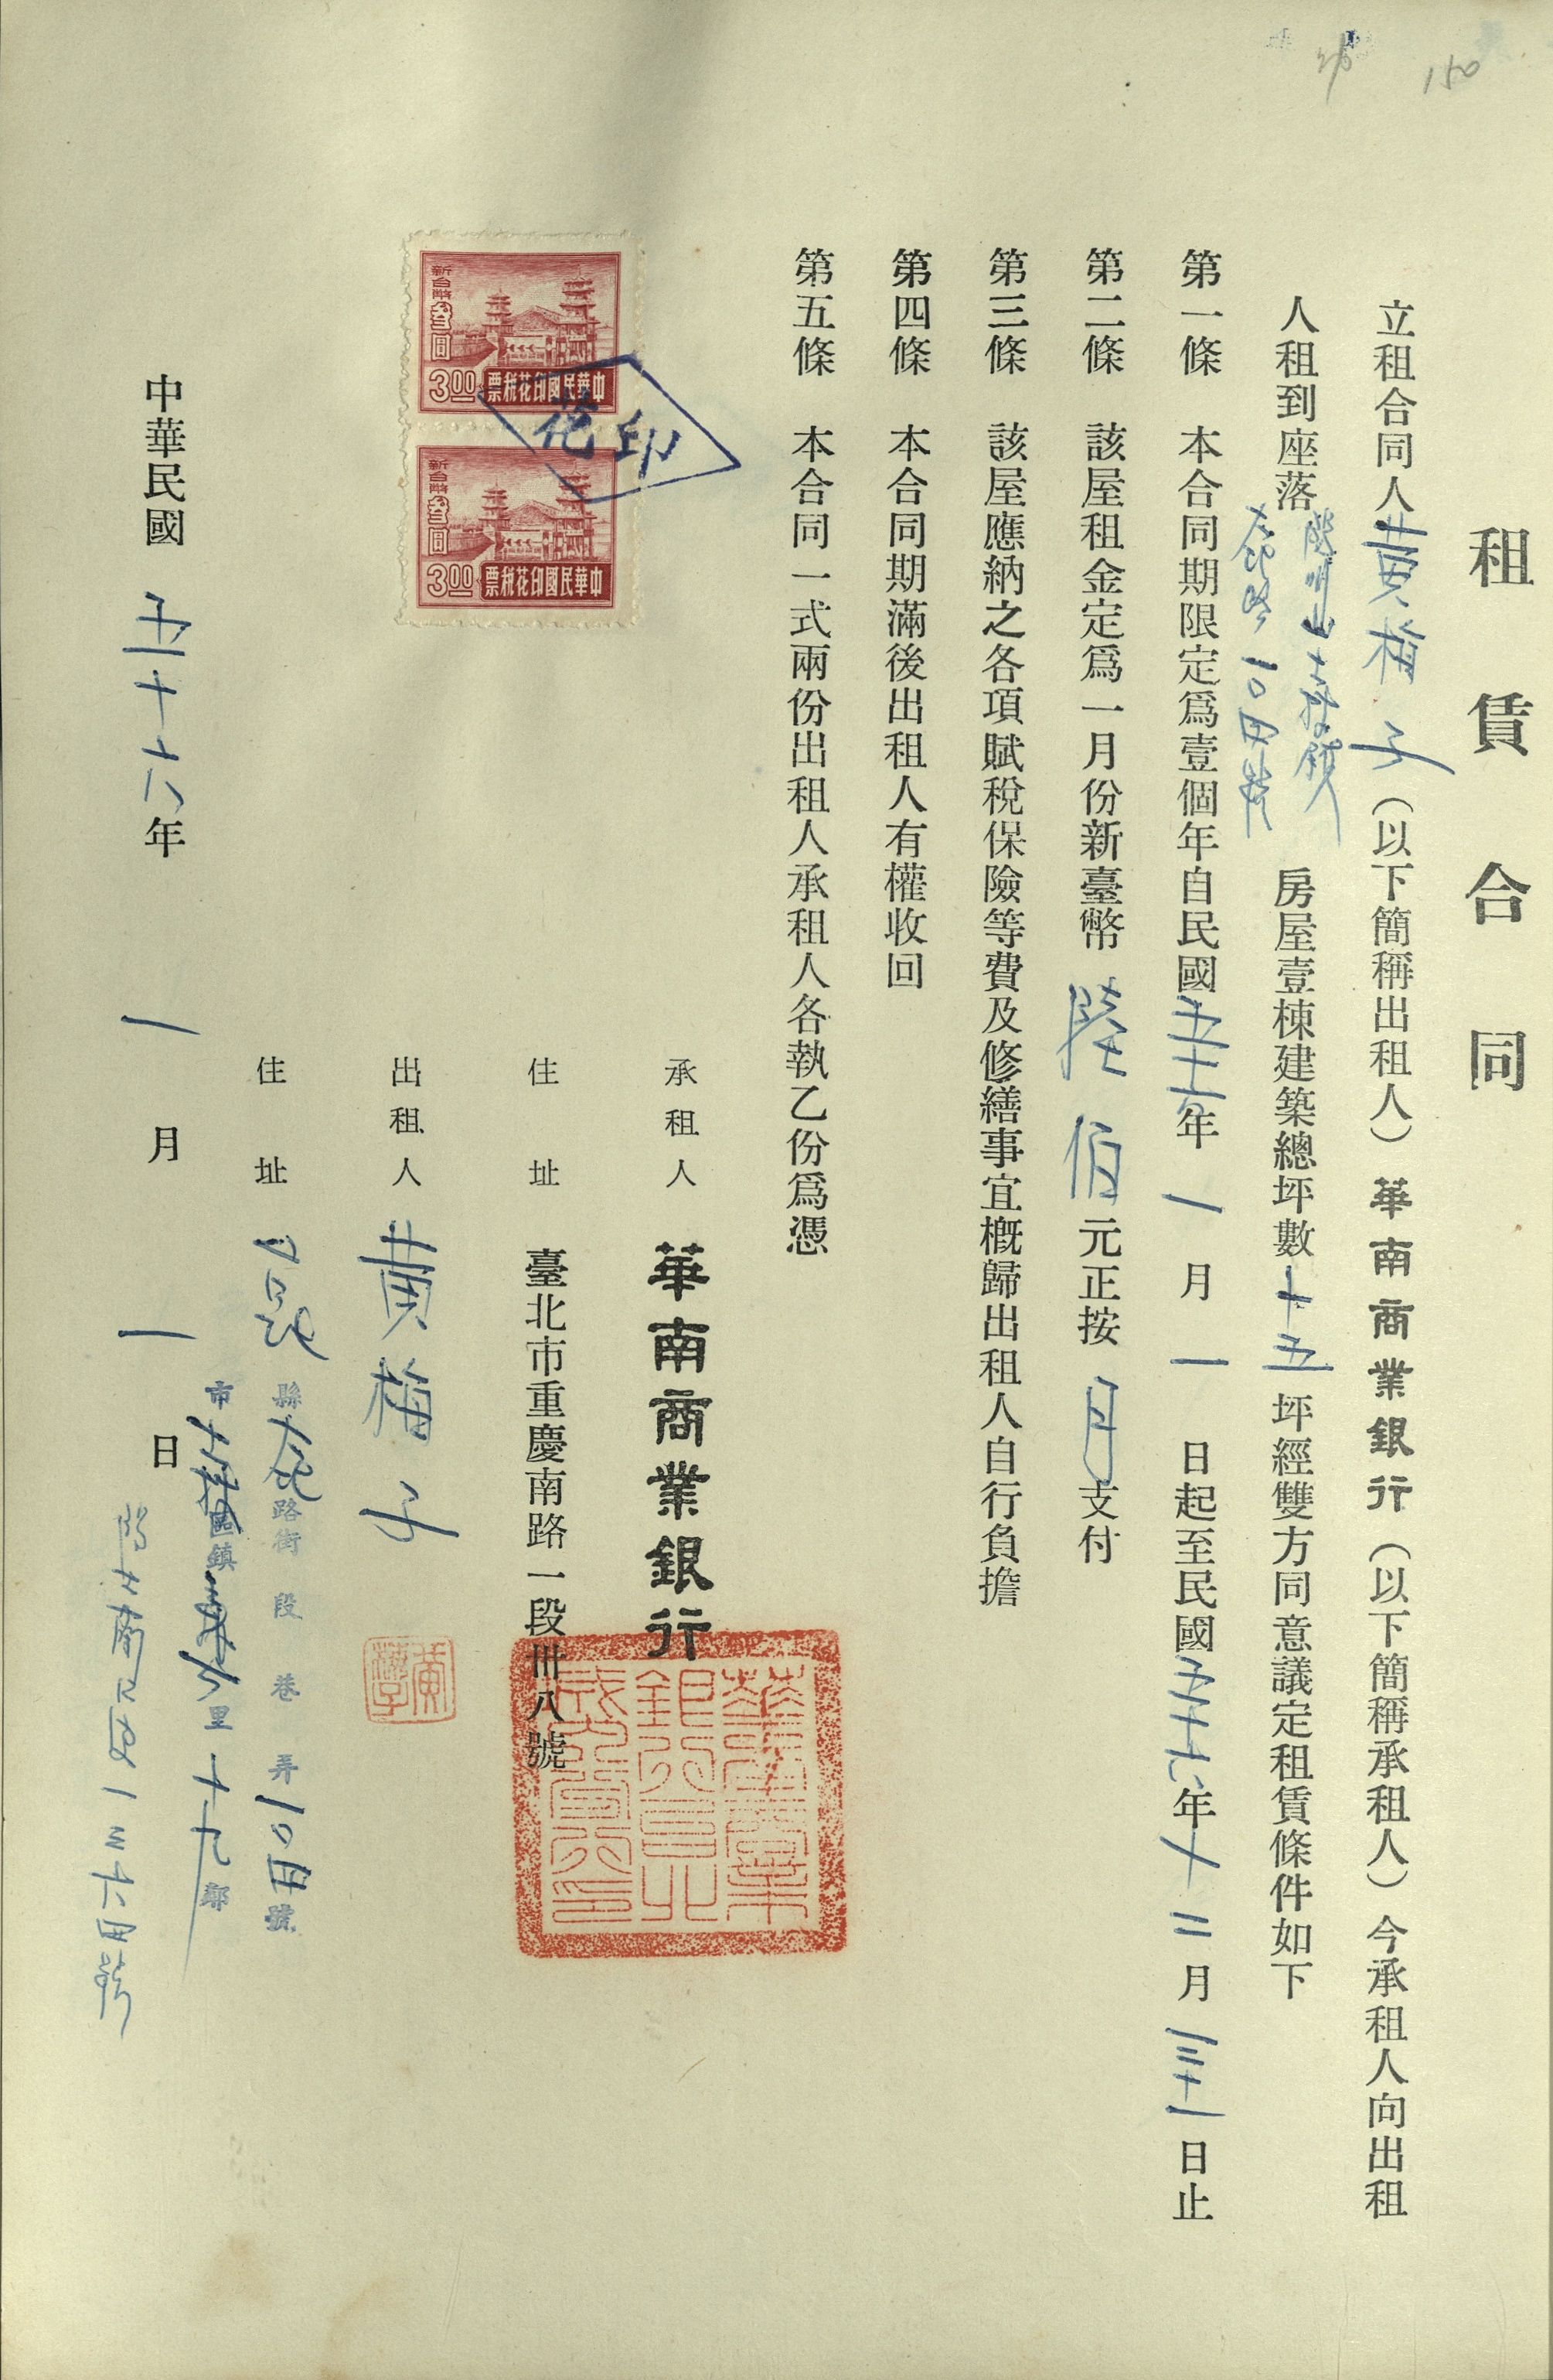 150
租賃合同
立租合同人黃梅子（以下簡稱出租人）華南商業銀行（以下簡稱承租人）今承租人向出租
人租到座落陽明山士林鎮
大北路一〇四號
房屋壹棟建築總坪數十五坪經雙方同意議定租賃條件如下
第一條 本合同期限定爲壹個年自民國五十六年一月一日起至民國五十六年十二月三十一日止
第二條 該屋租金定爲一月份新臺幣陸佰元正按月支付
第三條 該屋應納之各項賦稅保險等費及修繕事宜概歸出租人自行負擔
第四條 本合同期滿後出租人有權收回
第五條 本合同一式兩份出租人承租人各執乙份爲憑
新台幣叁圓
3.00
中華民國印花稅票
新台幣叁圓
3.00
中華民國印花稅票
印花
承租人 華南商業銀行
住址 臺北市重慶南路一段卅八號
出租人 黃梅子
住址
縣 路街 段 巷 弄一〇四號
市 區鎮 里十九鄰
中華民國五十六年一月一日